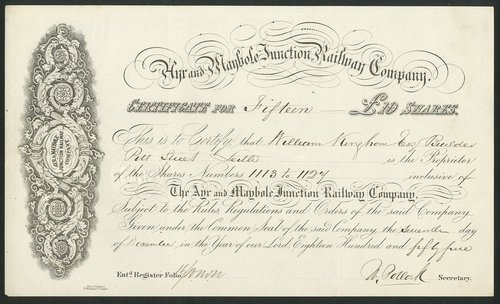 Ayr and Maybole Junction Railway Company.
CERTIFICATE FOR Fifteen £10 SHARES.
This is to Certify that William Kinghorn Esq Builder
Pitt Street Leith is the Proprietor
of the Shares Numbers 1113 to 1127 inclusive of
The Ayr and Maybole Junction Railway Company.
Subject to the Rules, Regulations and Orders of the said Company
Given under the Common Seal of the said Company, the Seventh day
of December in the Year of our Lord, Eighteen Hundred and fifty five
Entd. Register Folio
W. Pollock Secretary.